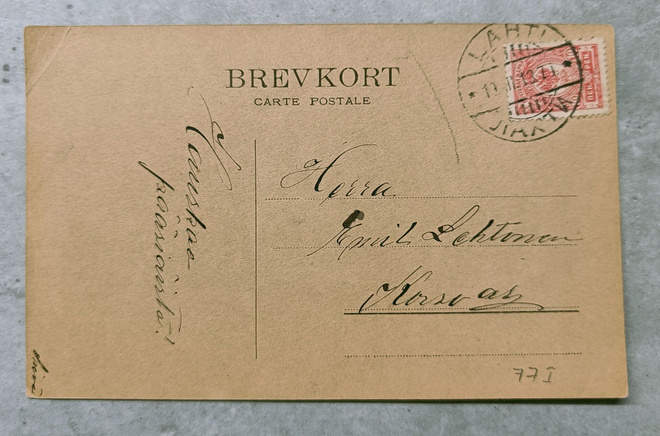 BREVKORT
CARTE POSTALE
LAHTI
ЛАХТИ
Hauskaa
pääsiäistä!
Herra
Emil Lehtonen
Korso as.
77 I